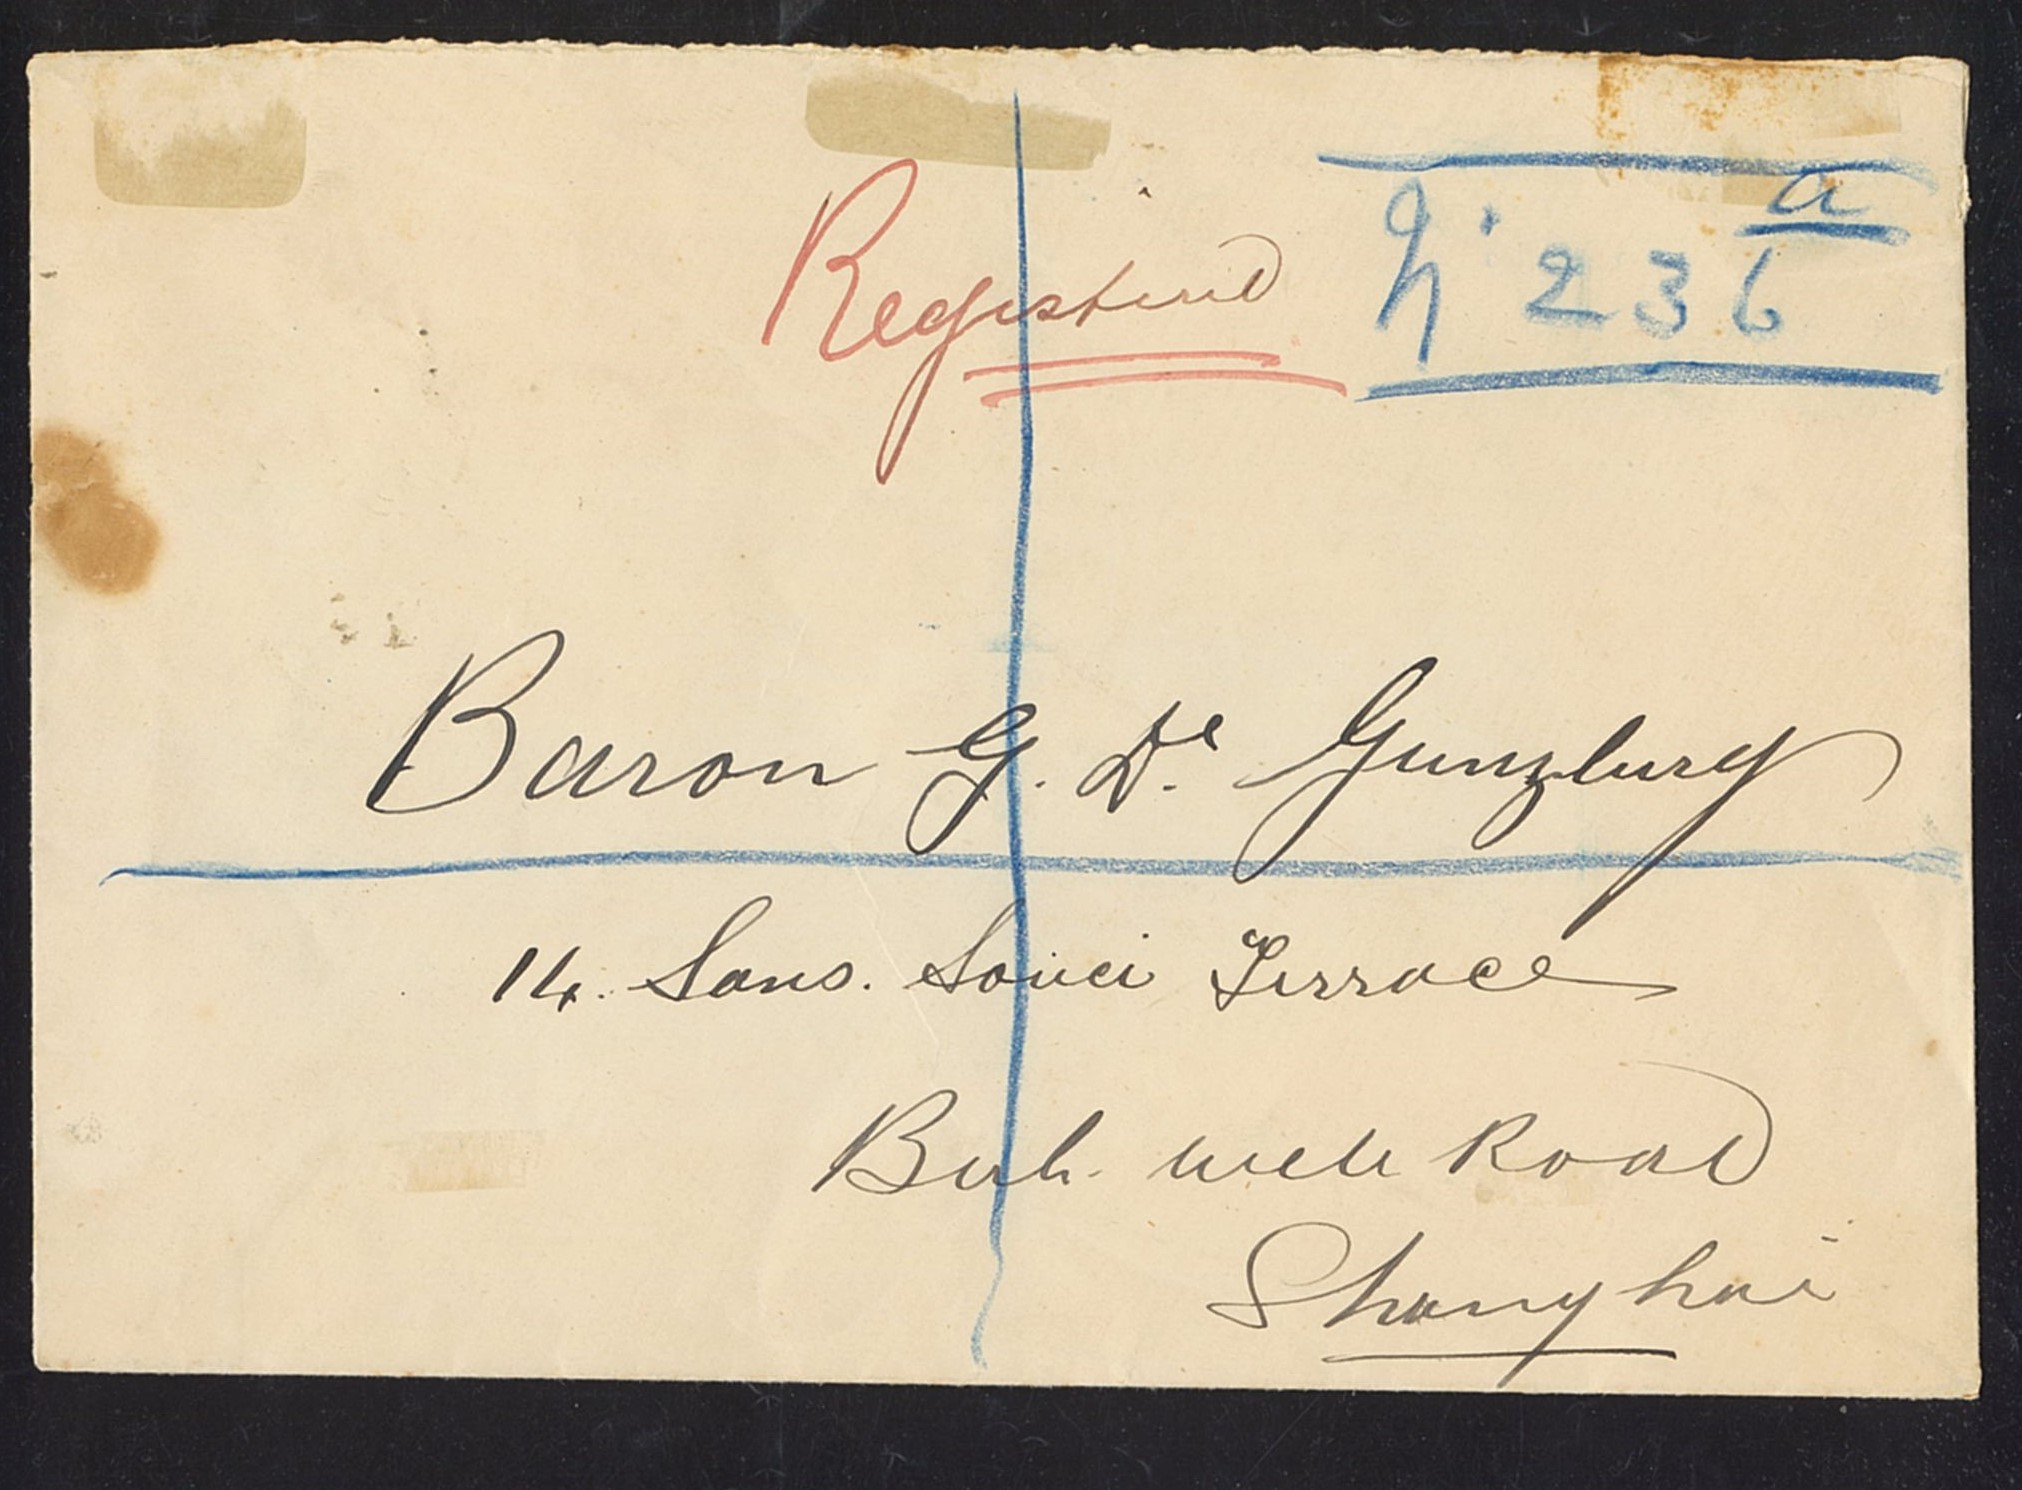 Registered
N° 236 a
Baron G. De Gunzburg
14. Sans. Souci Terrace
Bub. well Road
Shanghai